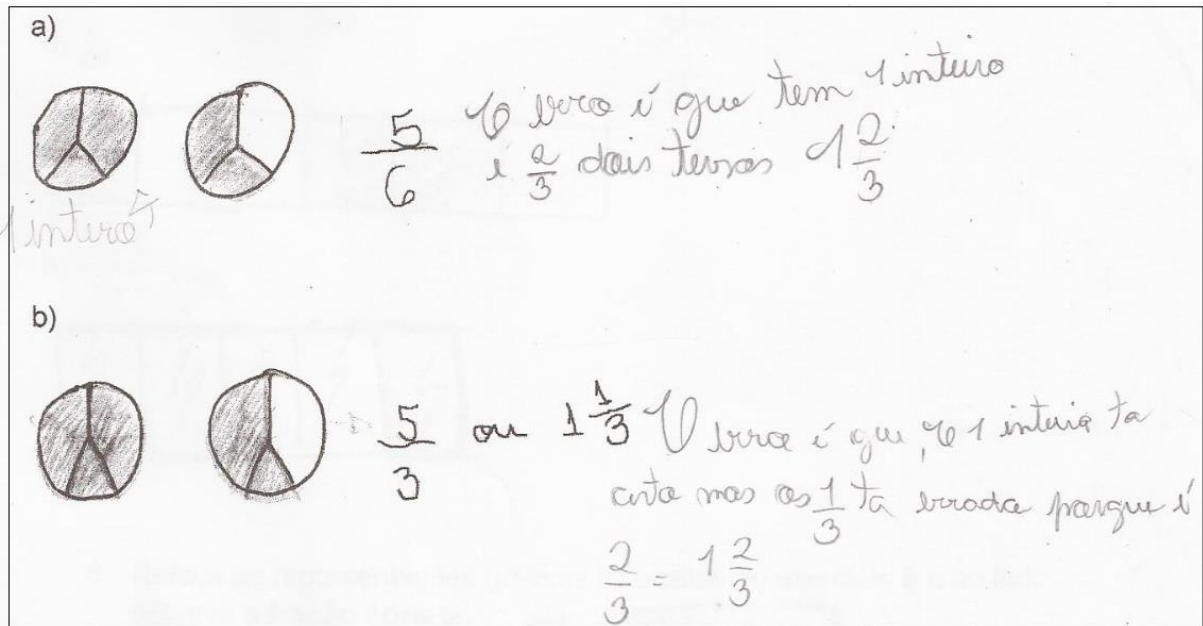 a)
5/6
O erro é que tem 1 inteiro
e 2/3 dois tersos 1 2/3
1 inteiro
b)
5/3 ou 1 1/3 O erro é que o 1 inteiro ta
certo mas os 1/3 ta errado porque é
2/3 - 1 2/3